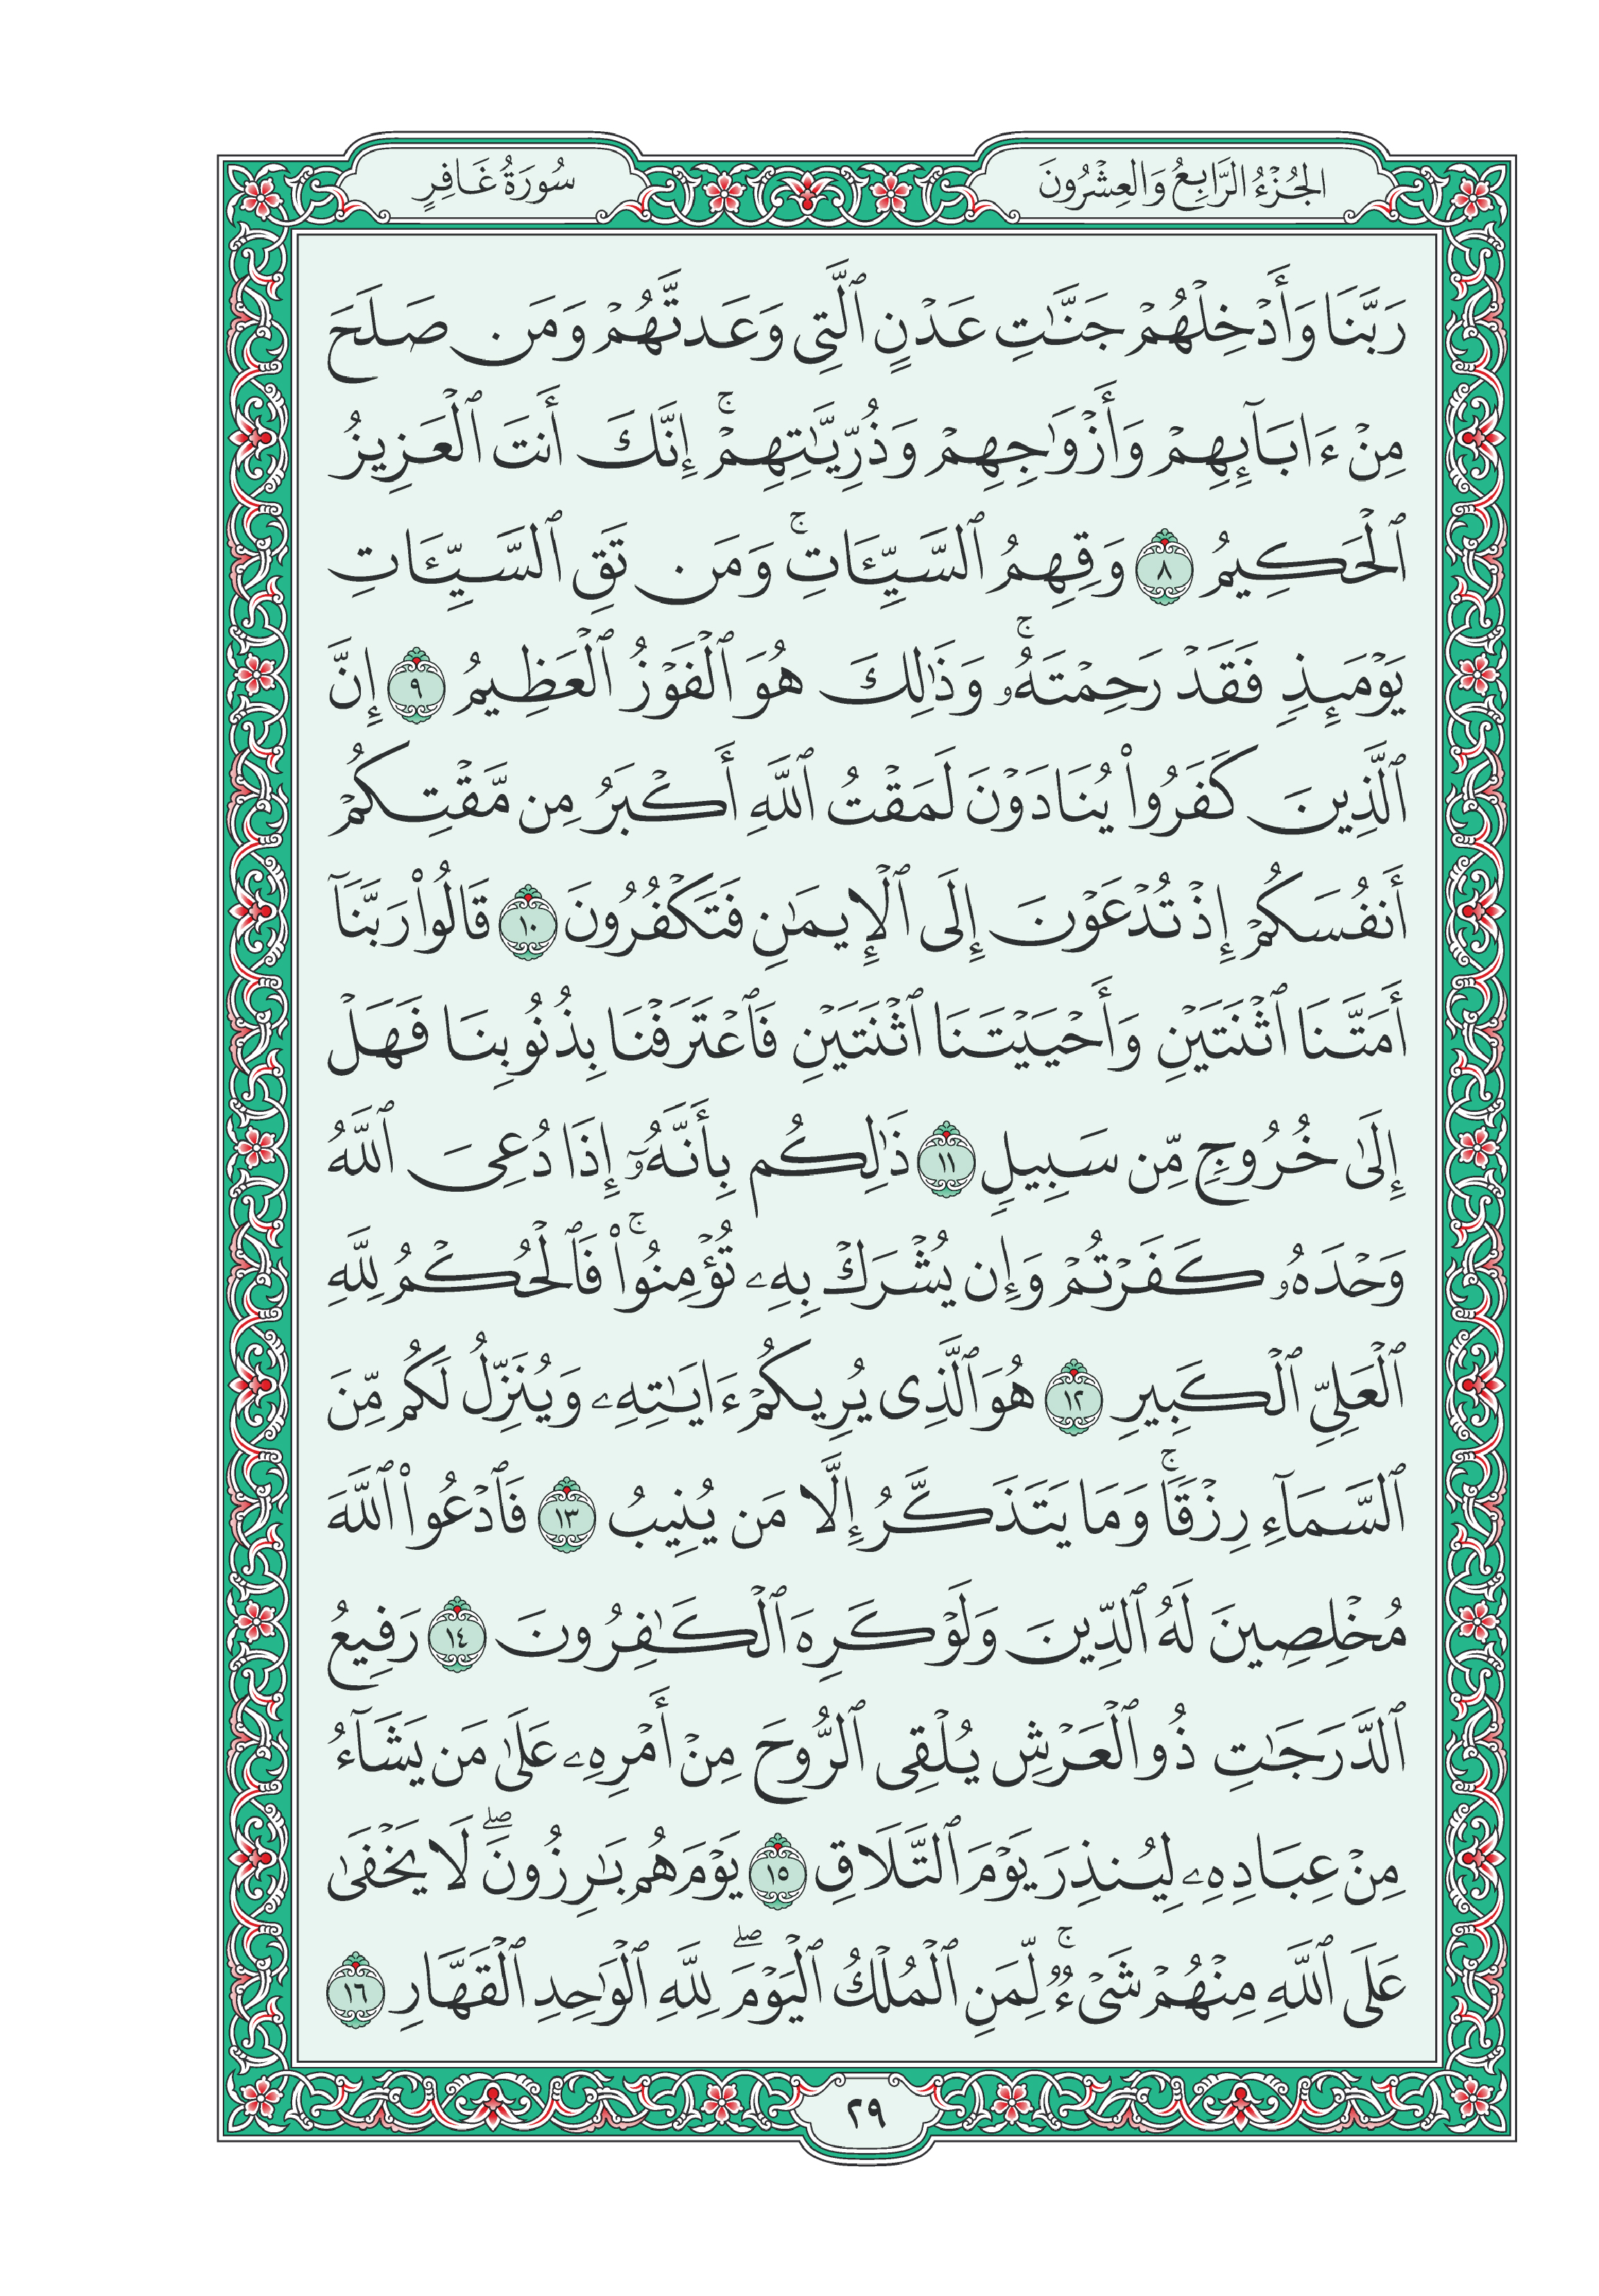 الجُزْءُ الرَّابِعُ وَالعِشْرُونَ
سُورَةُ غَافِرٍ
رَبَّنَا وَأَدۡخِلۡهُمۡ جَنَّٰتِ عَدۡنٍ ٱلَّتِي وَعَدتَّهُمۡ وَمَن صَلَحَ
مِنۡ ءَابَآئِهِمۡ وَأَزۡوَٰجِهِمۡ وَذُرِّيَّٰتِهِمۡۚ إِنَّكَ أَنتَ ٱلۡعَزِيزُ
ٱلۡحَكِيمُ ٨ وَقِهِمُ ٱلسَّيِّـَٔاتِۚ وَمَن تَقِ ٱلسَّيِّـَٔاتِ
يَوۡمَئِذٖ فَقَدۡ رَحِمۡتَهُۥۚ وَذَٰلِكَ هُوَ ٱلۡفَوۡزُ ٱلۡعَظِيمُ ٩ إِنَّ
ٱلَّذِينَ كَفَرُواْ يُنَادَوۡنَ لَمَقۡتُ ٱللَّهِ أَكۡبَرُ مِن مَّقۡتِكُمۡ
أَنفُسَكُمۡ إِذۡ تُدۡعَوۡنَ إِلَى ٱلۡإِيمَٰنِ فَتَكۡفُرُونَ ١٠ قَالُواْ رَبَّنَآ
أَمَتَّنَا ٱثۡنَتَيۡنِ وَأَحۡيَيۡتَنَا ٱثۡنَتَيۡنِ فَٱعۡتَرَفۡنَا بِذُنُوبِنَا فَهَلۡ
إِلَىٰ خُرُوجٖ مِّن سَبِيلٖ ١١ ذَٰلِكُم بِأَنَّهُۥٓ إِذَا دُعِيَ ٱللَّهُ
وَحۡدَهُۥ كَفَرۡتُمۡ وَإِن يُشۡرَكۡ بِهِۦ تُؤۡمِنُواْۚ فَٱلۡحُكۡمُ لِلَّهِ
ٱلۡعَلِيِّ ٱلۡكَبِيرِ ١٢ هُوَ ٱلَّذِي يُرِيكُمۡ ءَايَٰتِهِۦ وَيُنَزِّلُ لَكُم مِّنَ
ٱلسَّمَآءِ رِزۡقٗاۚ وَمَا يَتَذَكَّرُ إِلَّا مَن يُنِيبُ ١٣ فَٱدۡعُواْ ٱللَّهَ
مُخۡلِصِينَ لَهُ ٱلدِّينَ وَلَوۡ كَرِهَ ٱلۡكَٰفِرُونَ ١٤ رَفِيعُ
ٱلدَّرَجَٰتِ ذُو ٱلۡعَرۡشِ يُلۡقِي ٱلرُّوحَ مِنۡ أَمۡرِهِۦ عَلَىٰ مَن يَشَآءُ
مِنۡ عِبَادِهِۦ لِيُنذِرَ يَوۡمَ ٱلتَّلَاقِ ١٥ يَوۡمَ هُم بَٰرِزُونَۖ لَا يَخۡفَىٰ
عَلَى ٱللَّهِ مِنۡهُمۡ شَيۡءٞۚ لِّمَنِ ٱلۡمُلۡكُ ٱلۡيَوۡمَۖ لِلَّهِ ٱلۡوَٰحِدِ ٱلۡقَهَّارِ ١٦
٢٩